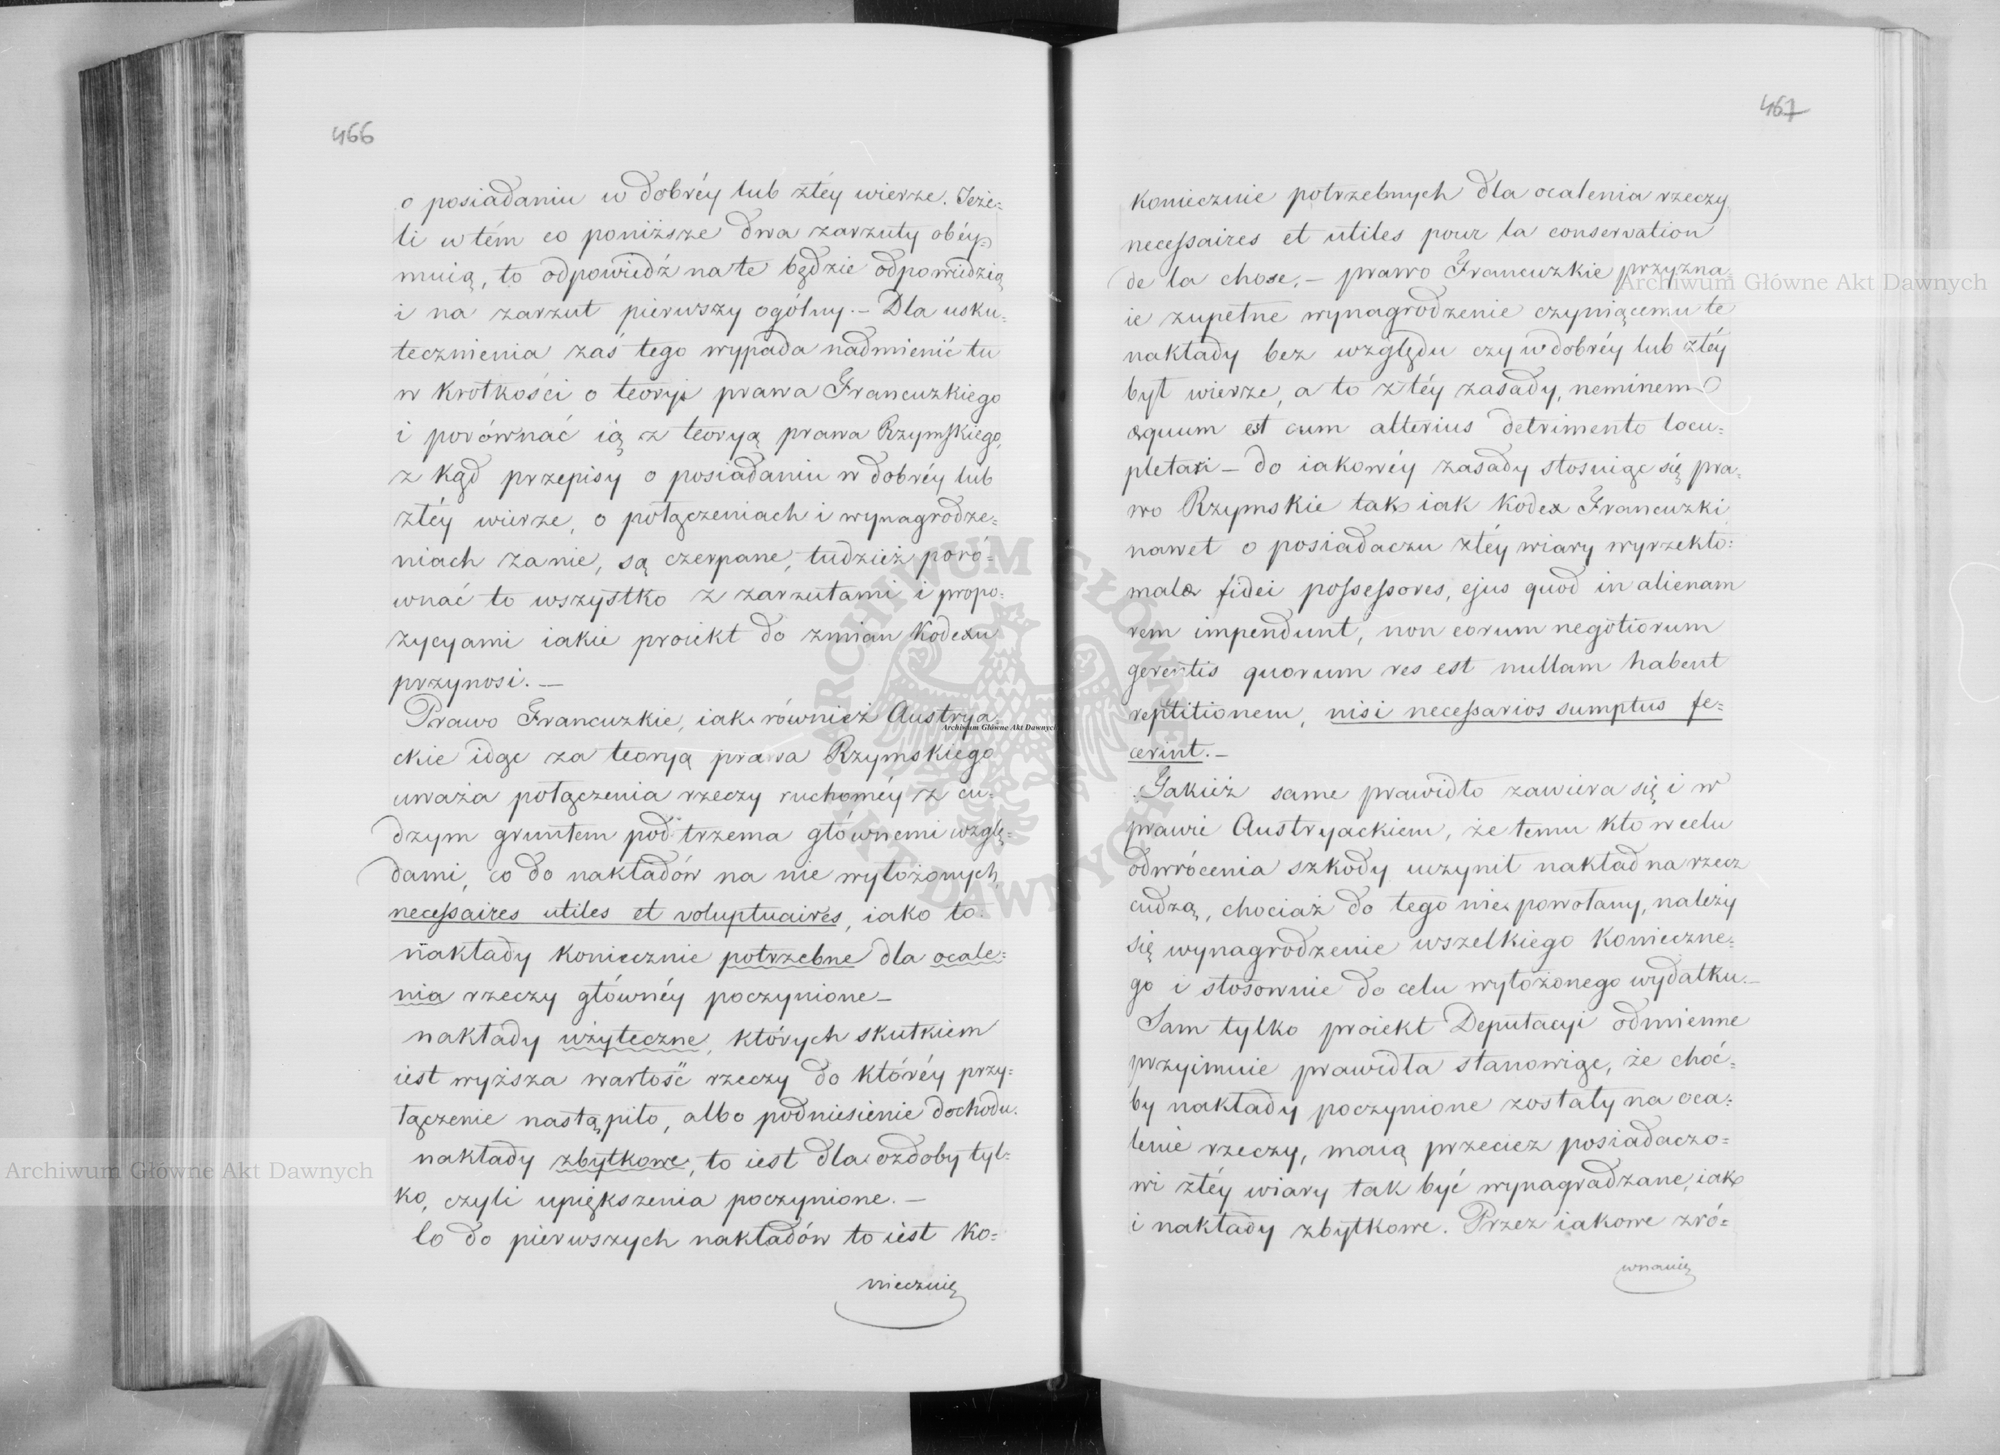 466
o posiadaniu w dobréy lub złéy wierze. Ieże-
li w tém co poniższe dwa zarzuty obéy-
muią, to odpowiedź na te będzie odpowiedzią
i na zarzut pierwszy ogólny. — Dla usku-
tecznienia zaś tego wypada nadmienić tu
w krótkości o teoryi prawa Francuzkiego
i porównać ią z teoryą prawa Rzymskiego,
z kąd przepisy o posiadaniu w dobréy lub
złéy wierze, o połączeniach i wynagrodze-
niach za nie, są czerpane, tudzież poró-
wnać to wszystko z zarzutami i propo-
zycyami iakie proiekt do zmian Kodexu
przynosi. —
Prawo Francuzkie, iak również Austrya-
ckie idąc za teoryą prawa Rzymskiego
uważa połączenia rzeczy ruchoméy z cu-
dzym gruntem pod trzema głównemi wzglę-
dami, co do nakładów na nie wyłożonych,
necessaires utiles et voluptuaires, iako to:
nakłady koniecznie potrzebne dla ocale-
nia rzeczy głównéy poczynione —
nakłady użyteczne, których skutkiem
iest wyższa wartość rzeczy do któréy przy-
łączenie nastąpiło, albo podniesienie dochodu.
nakłady zbytkowe, to iest dla ozdoby tyl-
ko, czyli upiększenia poczynione. —
Co do pierwszych nakładów to iest ko-
niecznie
467
koniecznie potrzebnych dla ocalenia rzeczy
necessaires et utiles pour la conservation
de la chose. — prawo Francuzkie przyzna-
ie zupełne wynagrodzenie czyniącemu te
nakłady bez względu czy w dobréy lub złéy
był wierze, a to z téy zasady, neminem
æquum est cum alterius detrimento locu-
pletari — do iakowéy zasady stosuiąc się pra-
wo Rzymskie tak iak Kodex Francuzki
nawet o posiadaczu złéy wiary wyrzekło:
malæ fidei possessores, ejus quod in alienam
rem impendunt, non eorum negotiorum
gerentis quorum res est nullam habent
reptitionem, nisi necessarios sumptus fe-
cerint. —
Jakież same prawidło zawiera się i w
prawie Austryackiem, że temu kto w celu
odwrócenia szkody uczynił nakład na rzecz
cudzą, chociaż do tego nie powołany, należy
się wynagrodzenie wszelkiego konieczne-
go i stosownie do celu wyłożonego wydatku. —
Sam tylko proiekt Deputacyi odmienne
przyimuie prawidła stanowiąc, że choć-
by nakłady poczynione zostały na oca-
lenie rzeczy, maią przecież posiadaczo-
wi złéy wiary tak być wynagradzane, iak
i nakłady zbytkowe. Przez iakowe zró-
wnanie
Archiwum Główne Akt Dawnych
Archiwum Główne Akt Dawnych
Archiwum Główne Akt Dawnych
ARCHIWUM GŁÓWNE AKT DAWNYCH